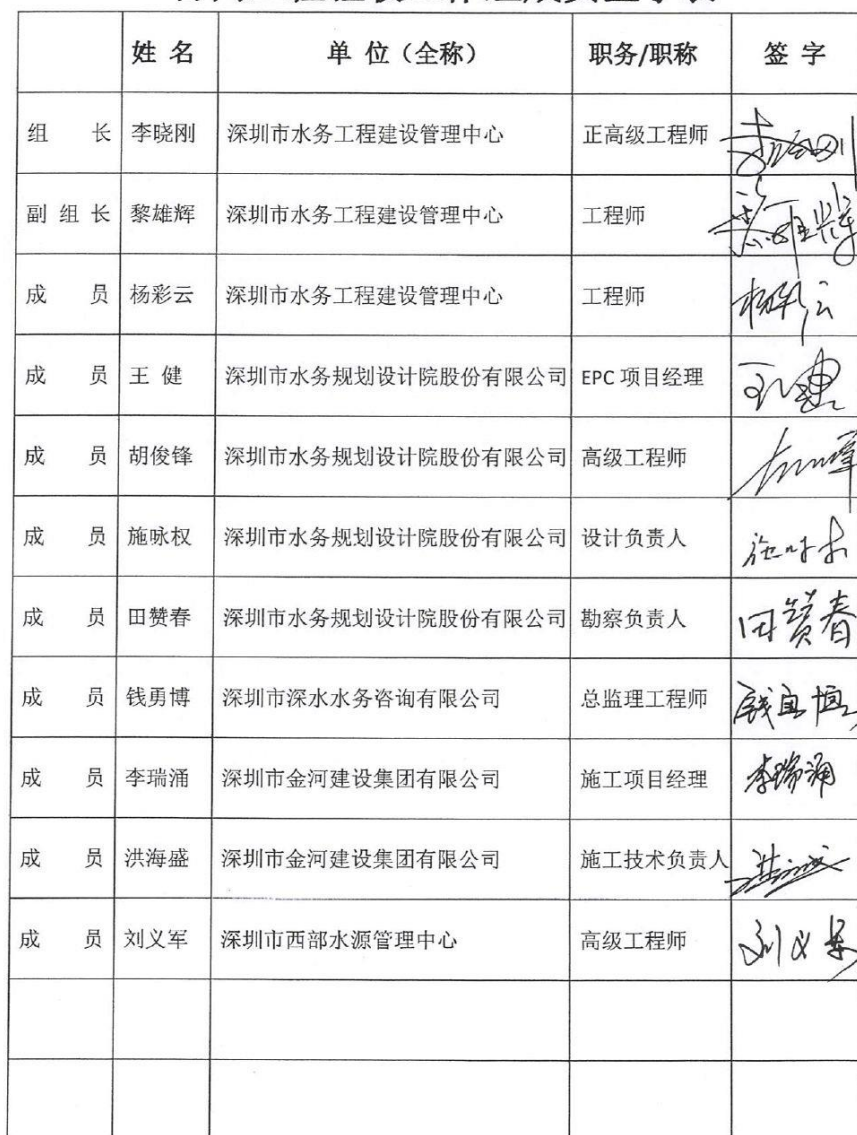 姓 名 单 位（全称） 职务/职称 签 字
组 长 李晓刚 深圳市水务工程建设管理中心 正高级工程师
副 组 长 黎雄辉 深圳市水务工程建设管理中心 工程师
成 员 杨彩云 深圳市水务工程建设管理中心 工程师
成 员 王 健 深圳市水务规划设计院股份有限公司 EPC 项目经理
成 员 胡俊锋 深圳市水务规划设计院股份有限公司 高级工程师
成 员 施咏权 深圳市水务规划设计院股份有限公司 设计负责人
成 员 田赞春 深圳市水务规划设计院股份有限公司 勘察负责人 田赞春
成 员 钱勇博 深圳市深水水务咨询有限公司 总监理工程师
成 员 李瑞涌 深圳市金河建设集团有限公司 施工项目经理 李瑞涌
成 员 洪海盛 深圳市金河建设集团有限公司 施工技术负责人
成 员 刘义军 深圳市西部水源管理中心 高级工程师 刘义军